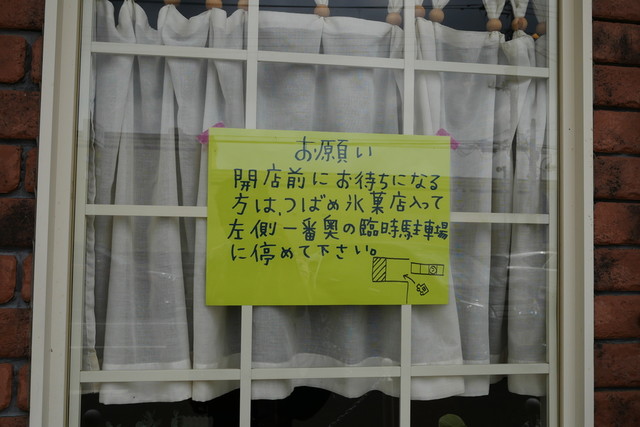 お願い
開店前にお待ちになる
方は、つばめ氷菓店入って
左側一番奥の臨時駐車場
に停めて下さい。